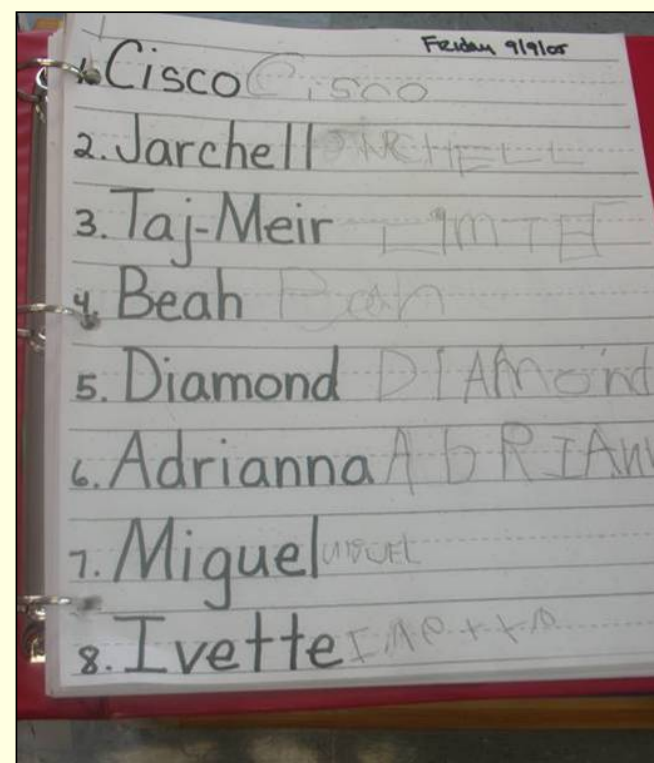 Friday 9/9/05
1. Cisco Cisco
2. Jarchell ARCHELL
3. Taj-Meir
4. Beah Beah
5. Diamond DIAMOnd
6. Adrianna AbRIAnn
7. Miguel
8. Ivette